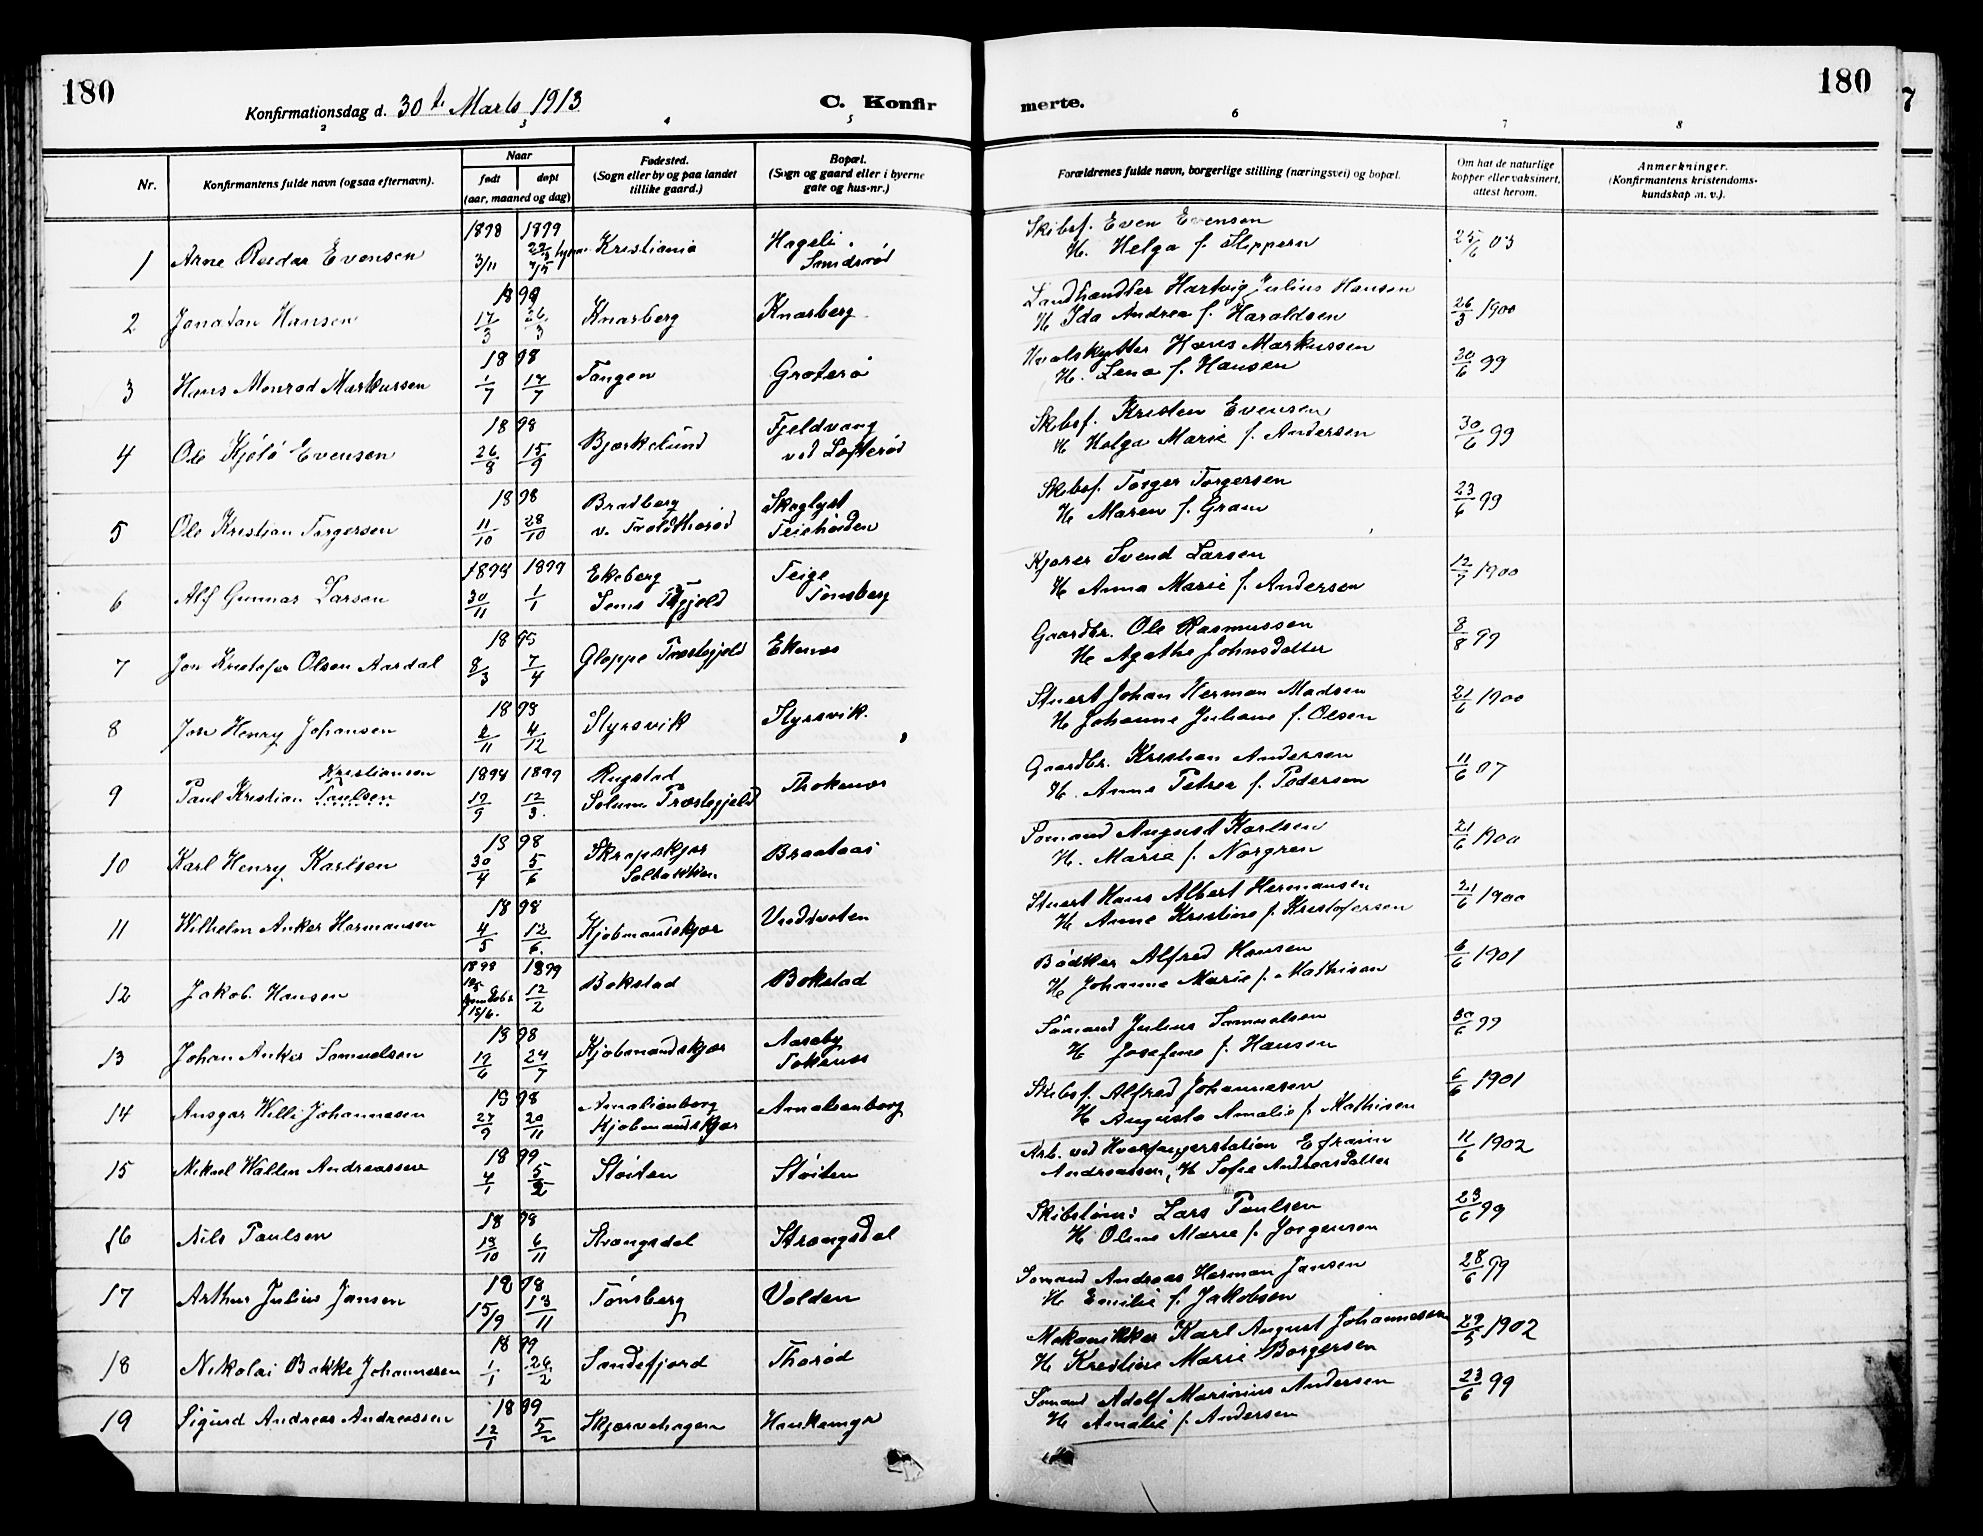 180
Konfirmationsdag d. 30te Marts 1913
C. Konfir
merte.
180
2 3 4 5 6 7 8
Nr.
Konfirmantens fulde navn (ogsaa efternavn).
Naar
født
døpt
(aar, maaned og dag)
Fødested.
(Sogn eller by og paa landet
tillike gaard.)
Bopæl.
(Sogn og gaard eller i byerne
gate og hus-nr.)
Forældrenes fulde navn, borgerlige stilling (næringsvei) og bopæl.
Om hat de naturlige
kopper eller vaksinert,
attest herom.
Anmerkninger.
(Konfirmantens kristendoms-
kundskap m. v.).
1898 1899 Skibsf. Even Evensen
1 Arne Reidar Evensen 3/11 Kristiania H. Helga f. 25/6 03
18 99 Landhandler Hartvig Julius Hansen
2 Jonatan Hansen 17/3 26/3 Knarberg Knarberg H Ida Andrea f. Haraldsen 26/3 1900
18 98 Hvalskytter Hans Markussen
3 Hans Monrad Markussen 1/7 17/7 Tangen Grøterø H. Lena f. Hansen 30/6 99
18 98 Fjeldvang Skibsf. Kristen Evensen
4 Ole Evensen 26/8 15/9 Bjerkelund ved H Helga Marie f. Andersen 30/6 99
18 98 Bradberg Skoglyst Skibsf. Torger Torgersen
5 Ole Kristian Torgersen 11/10 28/10 v. Teiehøiden H Maren f. Gram 23/6 99
1898 1899 Ekeberg Teige Kjører Svend Larsen
6 Alf Gunnar Larsen 30/11 1/1 Sems Tønsberg H Anna Marie f. Andersen 12/7 1900
18 95 Gaardbr. Ole Rasmussen
7 Jon Kristofer Olsen Aardal 8/3 7/4 Gloppe Præstegjeld Ekenes H Agathe Johnsdatter 8/8 99
18 98 Stuert Johan Herman Madsen
8 Jon Henry Johansen 2/11 4/12 Styrsvik Styrsvik. H Johanne Juliane f. Olsen 21/6 1900
Kristiansen 1898 1899 Rugstad Gaardbr. Kristian Andersen
9 Paul Kristian Paulsen 12/9 12/3. Solum Præstegjeld Thokenes H. Anne Petrea f. Pedersen 11/6 07
18 98 Skrapskjær Sømand August Karlsen
10 Karl Henry Karlsen 30/4 5/6 Solbakken Braataas H. Marie f. Norgren 21/6 1900
18 98 Stuert Hans Albert Hermansen
11 Wilhelm Anker Hermansen 4/5 12/6. Kjøbmandskjær H Anne Kristine f. Kristofersen 21/6 1900
1898 1899 Bødker Alfred Hansen
12 Jakob. Hansen 12/2 Bokstad Bokstad H Johanne Marie f. Mathisen 6/6 1901
18 98 Aaseby Sømand Julius Samuelsen
13 Johan Anker Samuelsen 12/6 24/7 Kjøbmandskjær Tokenes H Josefine f. Hansen 30/6 99
18 98 Amalienborg Skibsf. Alfred Johannesen
14 Ansgar Willi Johannesen 27/9 20/11 Kjøbmandskjær Amalienborg H Augusta Amalie f. Mathisen 6/6 1901
18 99 Arb. ved Hvalfangerstation Efraim
15 Mikael Wallin Andreassen 4/1 5/2 Støiten Støiten Andreassen, H Sofie Andreasdatter 11/6 1902
18 98 Lars Paulsen
16 Nils Paulsen 19/10 6/11 Strængsdal Strængsdal H Oline Marie f. Jørgensen 23/6 99
18 98 Sømand Andreas Herman Jansen
17 Arthur Julius Jansen 15/9 13/11 Tønsberg Volden H Emilie f. Jakobsen 28/6 99
18 99 Mekanikker Karl August Johannesen
18 Nikolai Bakke Johannesen 1/1 26/2 Sandefjord Thorød H Kristine Marie Borgersen 29/5 1902
18 99 Sømand Adolf Marinius Andersen
19 Sigurd Andreas Andreassen 12/1 5/2 Skjærvehagen H Amalie f. Andersen 23/6 99